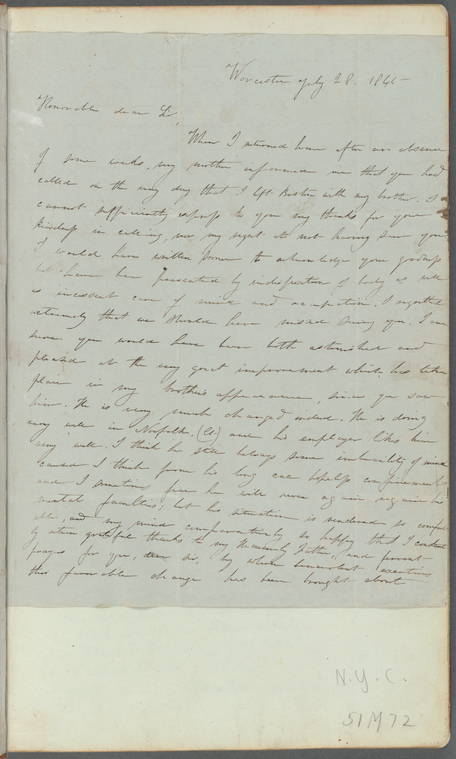 Worcester July 28. 184
Honorable dear Sir,
When I returned home after an absence
of some weeks, my mother informed me that you had
called on the very day that I left Boston with my brother. I
cannot sufficiently express to you my thanks for your
kindness in calling, nor my regret at not having seen you
I would have written sooner to acknowledge your goodness
but have been prevented by indisposition of body as well
as incessant care of mind and occupation. I regretted
extremely that we should have missed seeing you. I am
sure you would have been both astonished and
pleased at the very great improvement which has taken
place in my brother's appearance, since you saw
him. He is very much changed indeed. He is doing
very well in Norfolk. (Ct) and his employer likes him
very well. I think he still betrays some imbecility of mind
caused I think from his long and hopeless confinement
and I sometimes fear he will never again regain his
mental faculties; but his situation is rendered so comfort
able, and my mind comparatively so happy that I constantly
return grateful thanks to my Heavenly Father, and fervent
prayers for you, dear sir, by whose benevolent exertions
this favorable change has been brought about
N.Y.C.
51M72